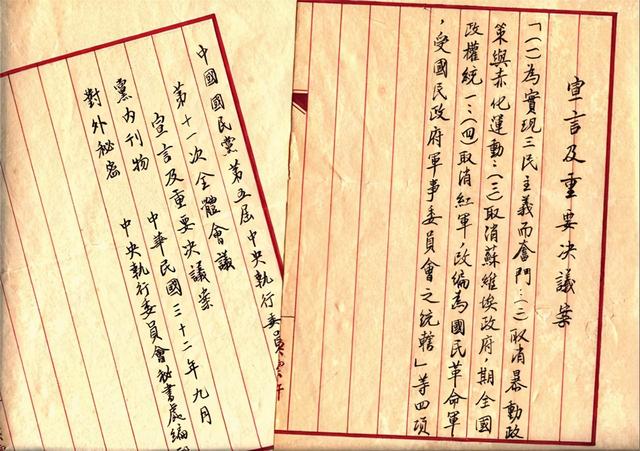 宣言及重要決議案
「(一)為實現三民主義而奮鬥:(二)取消暴動政
策與赤化運動:(三)取消蘇維埃政府,期全國
政權統一:(四)取消紅軍,改編為國民革命軍
,受國民政府軍事委員會之統轄」等四項
中國國民黨第五屆中央執行委員
第十一次全體會議
宣言及重要決議案
中華民國三十二年九月
黨內刊物
中央執行委員會秘書處編
對外秘密